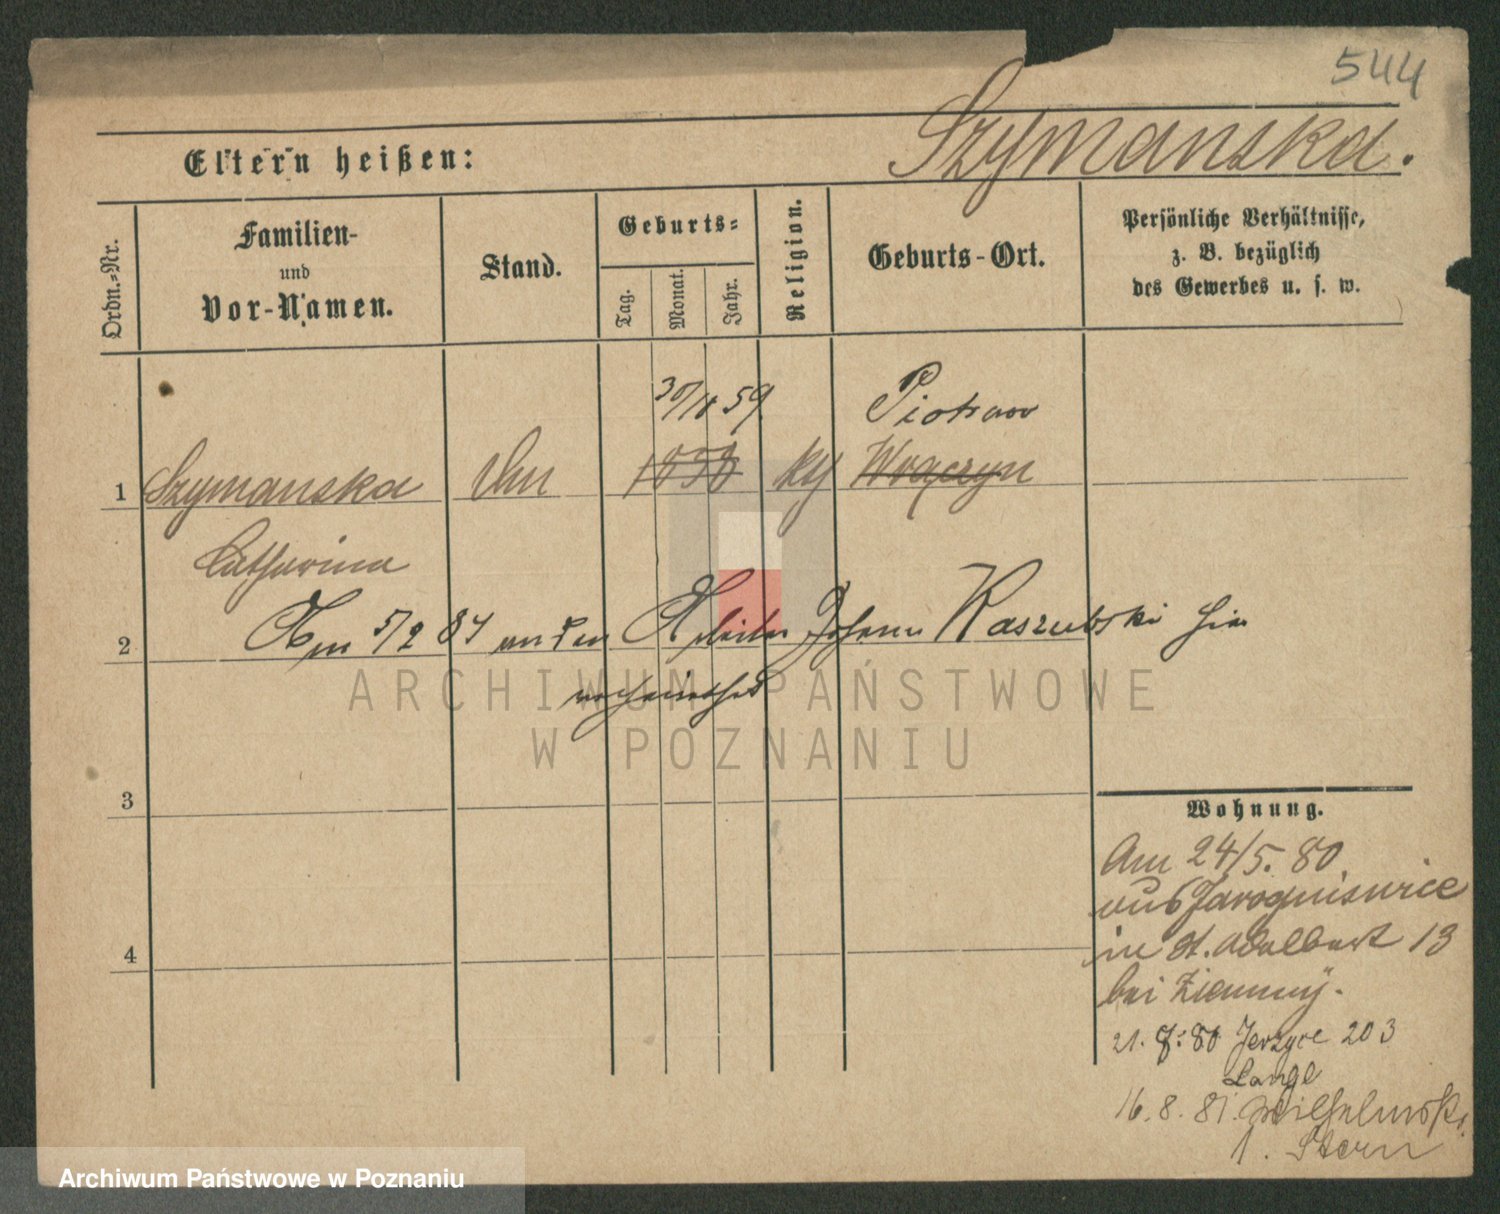 544
Szymanska.
Eltern heißen:
Ordn.=Nr.
Familien-
und
Vor-Namen.
Stand.
Geburts=
Tag.
Monat.
Jahr.
Religion.
Geburts-Ort.
Persönliche Verhältnisse,
z. B. bezüglich
des Gewerbes u. s. w.
59 Piotrowo
1 Szymanska 1858 kg
Catharina
2 Am 5/2 84 an den Arbeiter Johann Kaszubski hier
verheirathet
3
4
Wohnung.
Am 24/5. 80
aus Jarogniewice
in St. Adalbert 13
bei Ziemny.
21. 8. 80 Jerzyce 203
Lange
16. 8. 81. Wilhelmspl.
1. Stern
ARCHIWUM PAŃSTWOWE
W POZNANIU
Archiwum Państwowe w Poznaniu